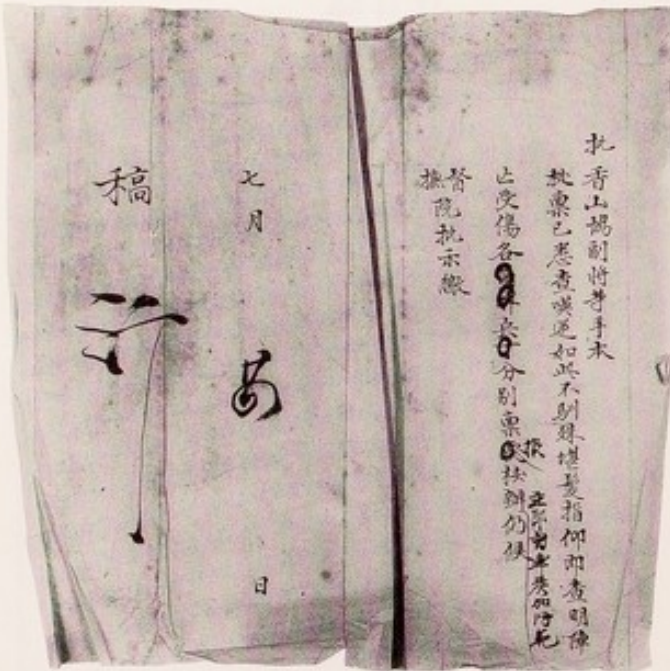 批香山協副將等手本
批稟已悉查嘆逆如此不馴殊堪髮指仰即查明陣
亡受傷各兵分別稟核辦仍候
督
撫院批示繳
七月
日
稿
行